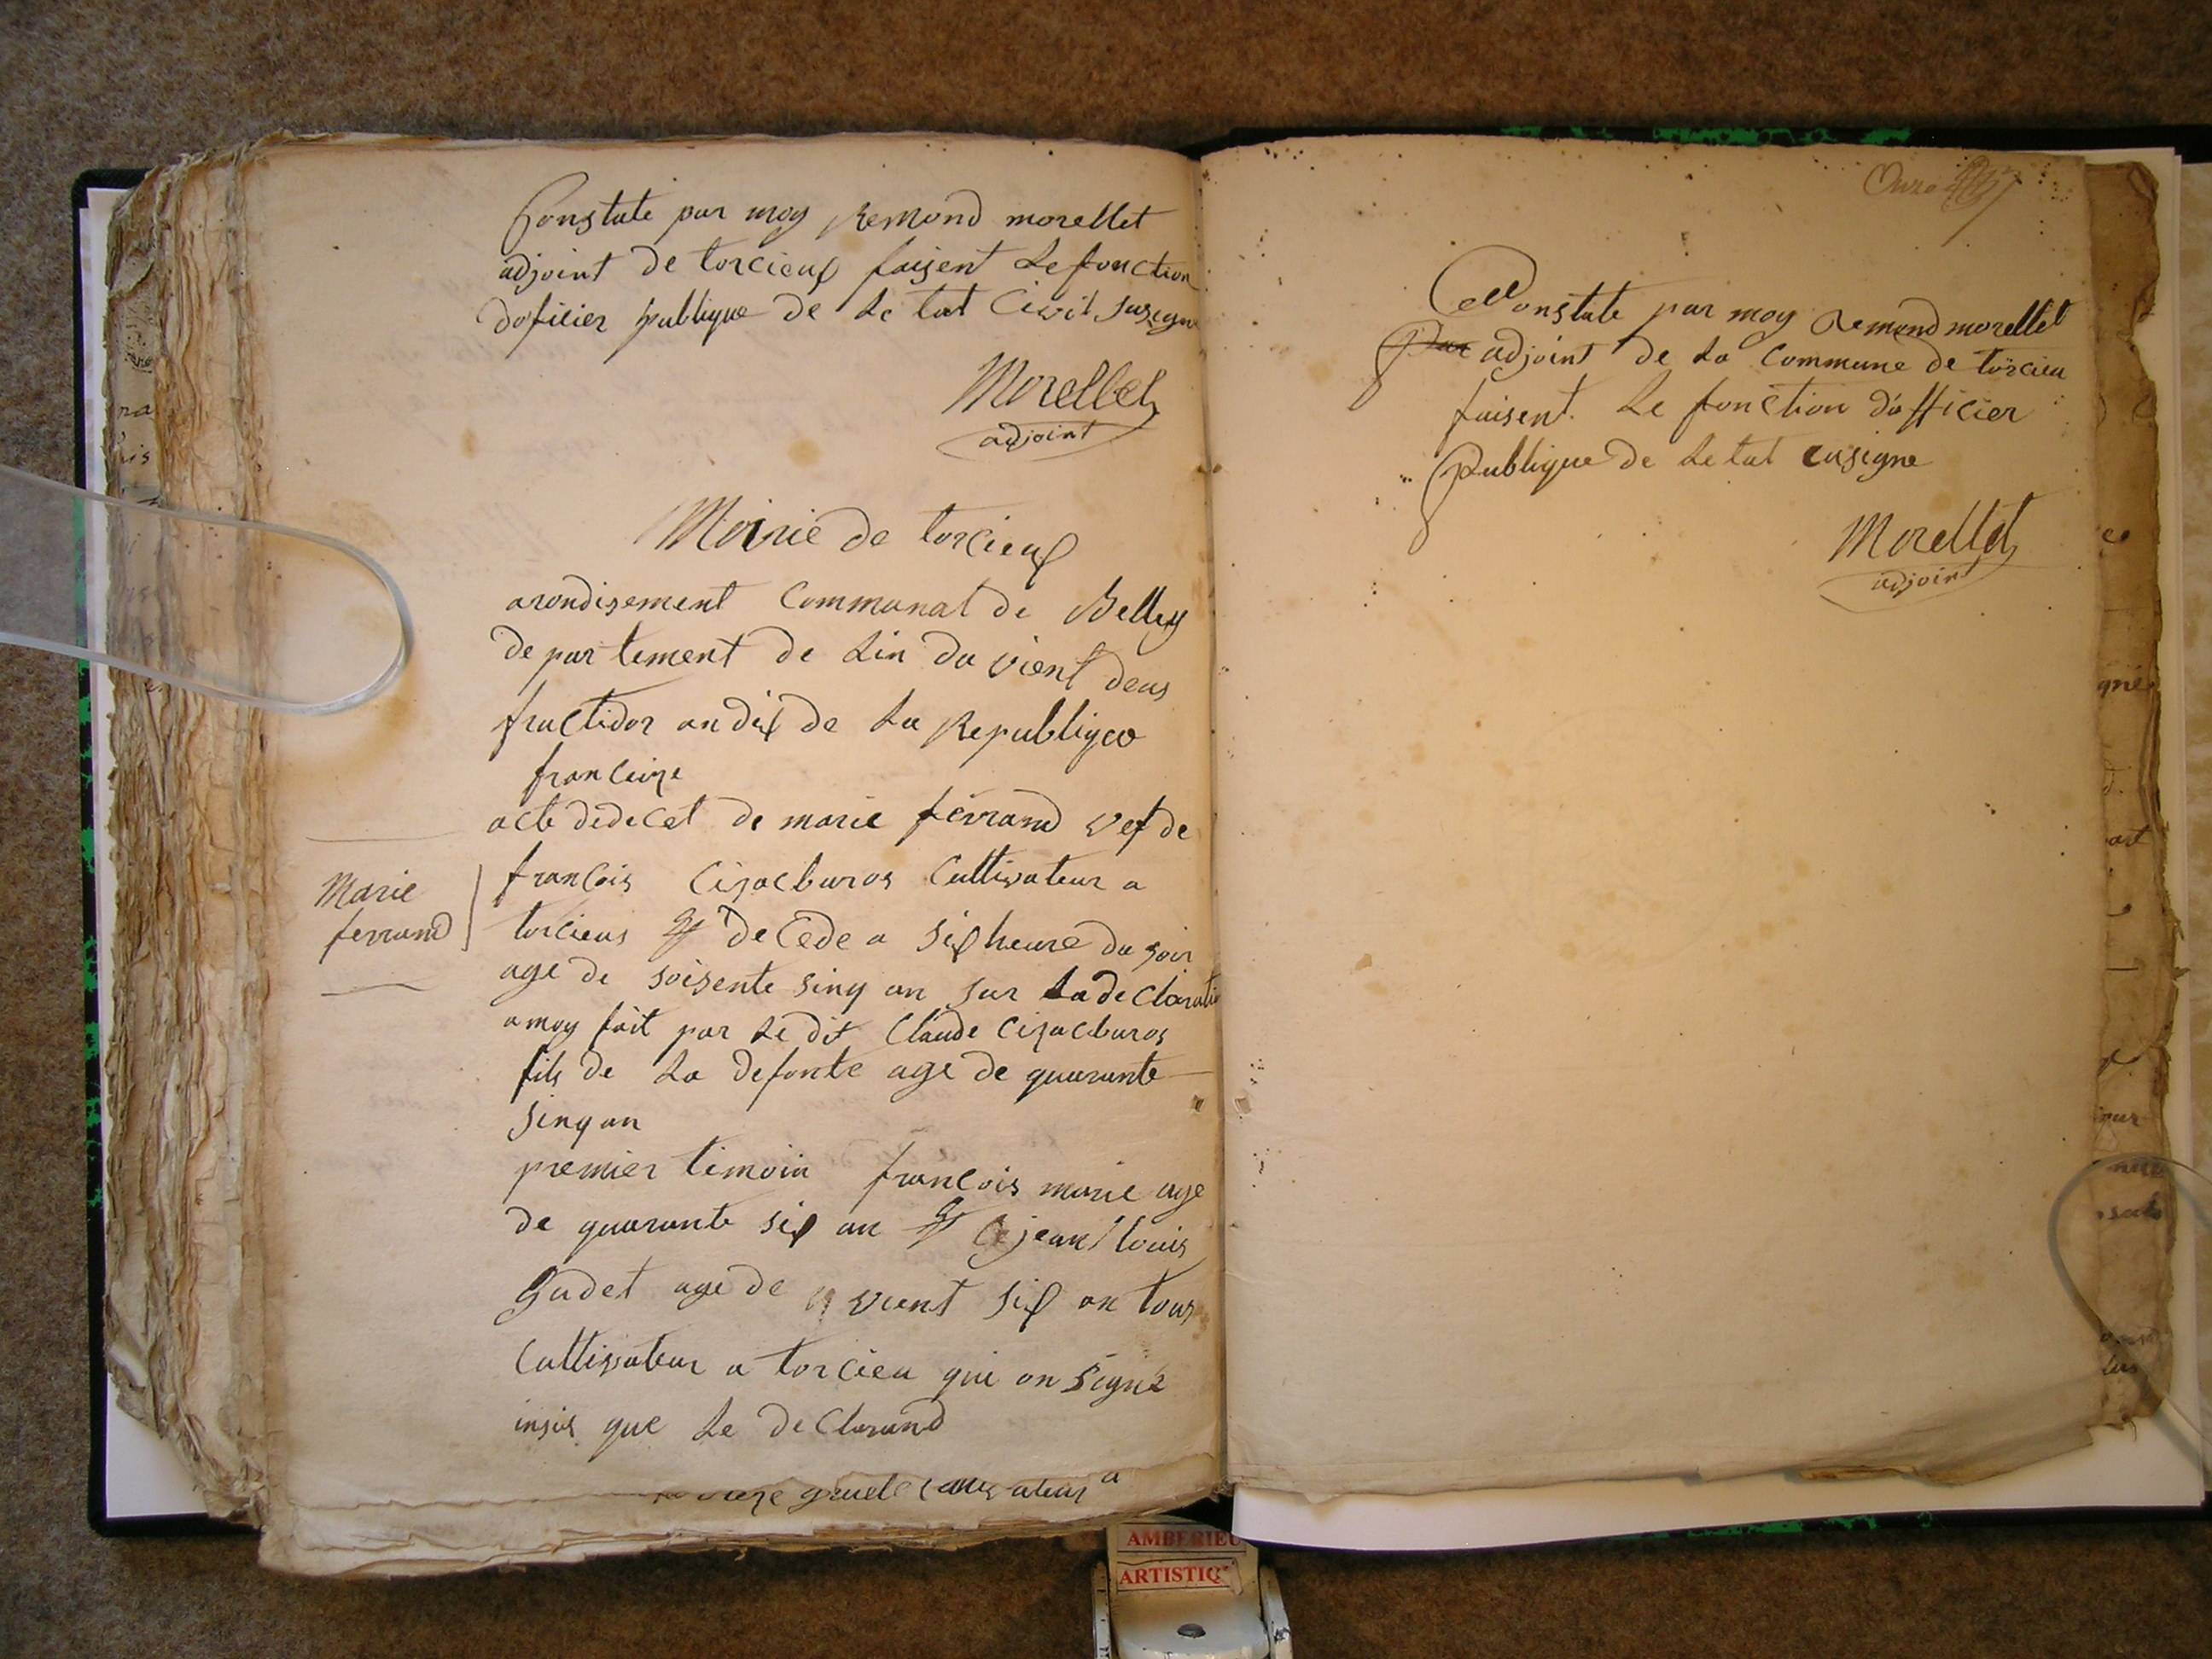 Constate par moy Remond morellet
adjoint de torcieux faisent Le fonction
doficier publique de Le tat Civil susigne
Morellet
adjoint
Mairie de torcieux
arondisement Communal de Belley
departement de Lin du vient deus
fructidor an dix de La Republique
francaize
acte dedecet de marie ferrand vef de
Marie
ferrand
francois Cultivateur a
torcieus decede a six heure du soir
age de soisente sinq an sur La declaration
a moy fait par Le dit Claude
fils de La defonte age de quarante
sinq an
premier temoin francois marie age
de quarante six an jean louis
Gudet age de vient six an tous
Cultivateur a torcieu qui on signé
insis que Le declarand
a
Constate par moy Remond morellet
adjoint de La Commune de torcieu
faisent Le fonction d'officier
Publique de Letat
Morellet
adjoint
AMBERIEU
ARTISTIQ